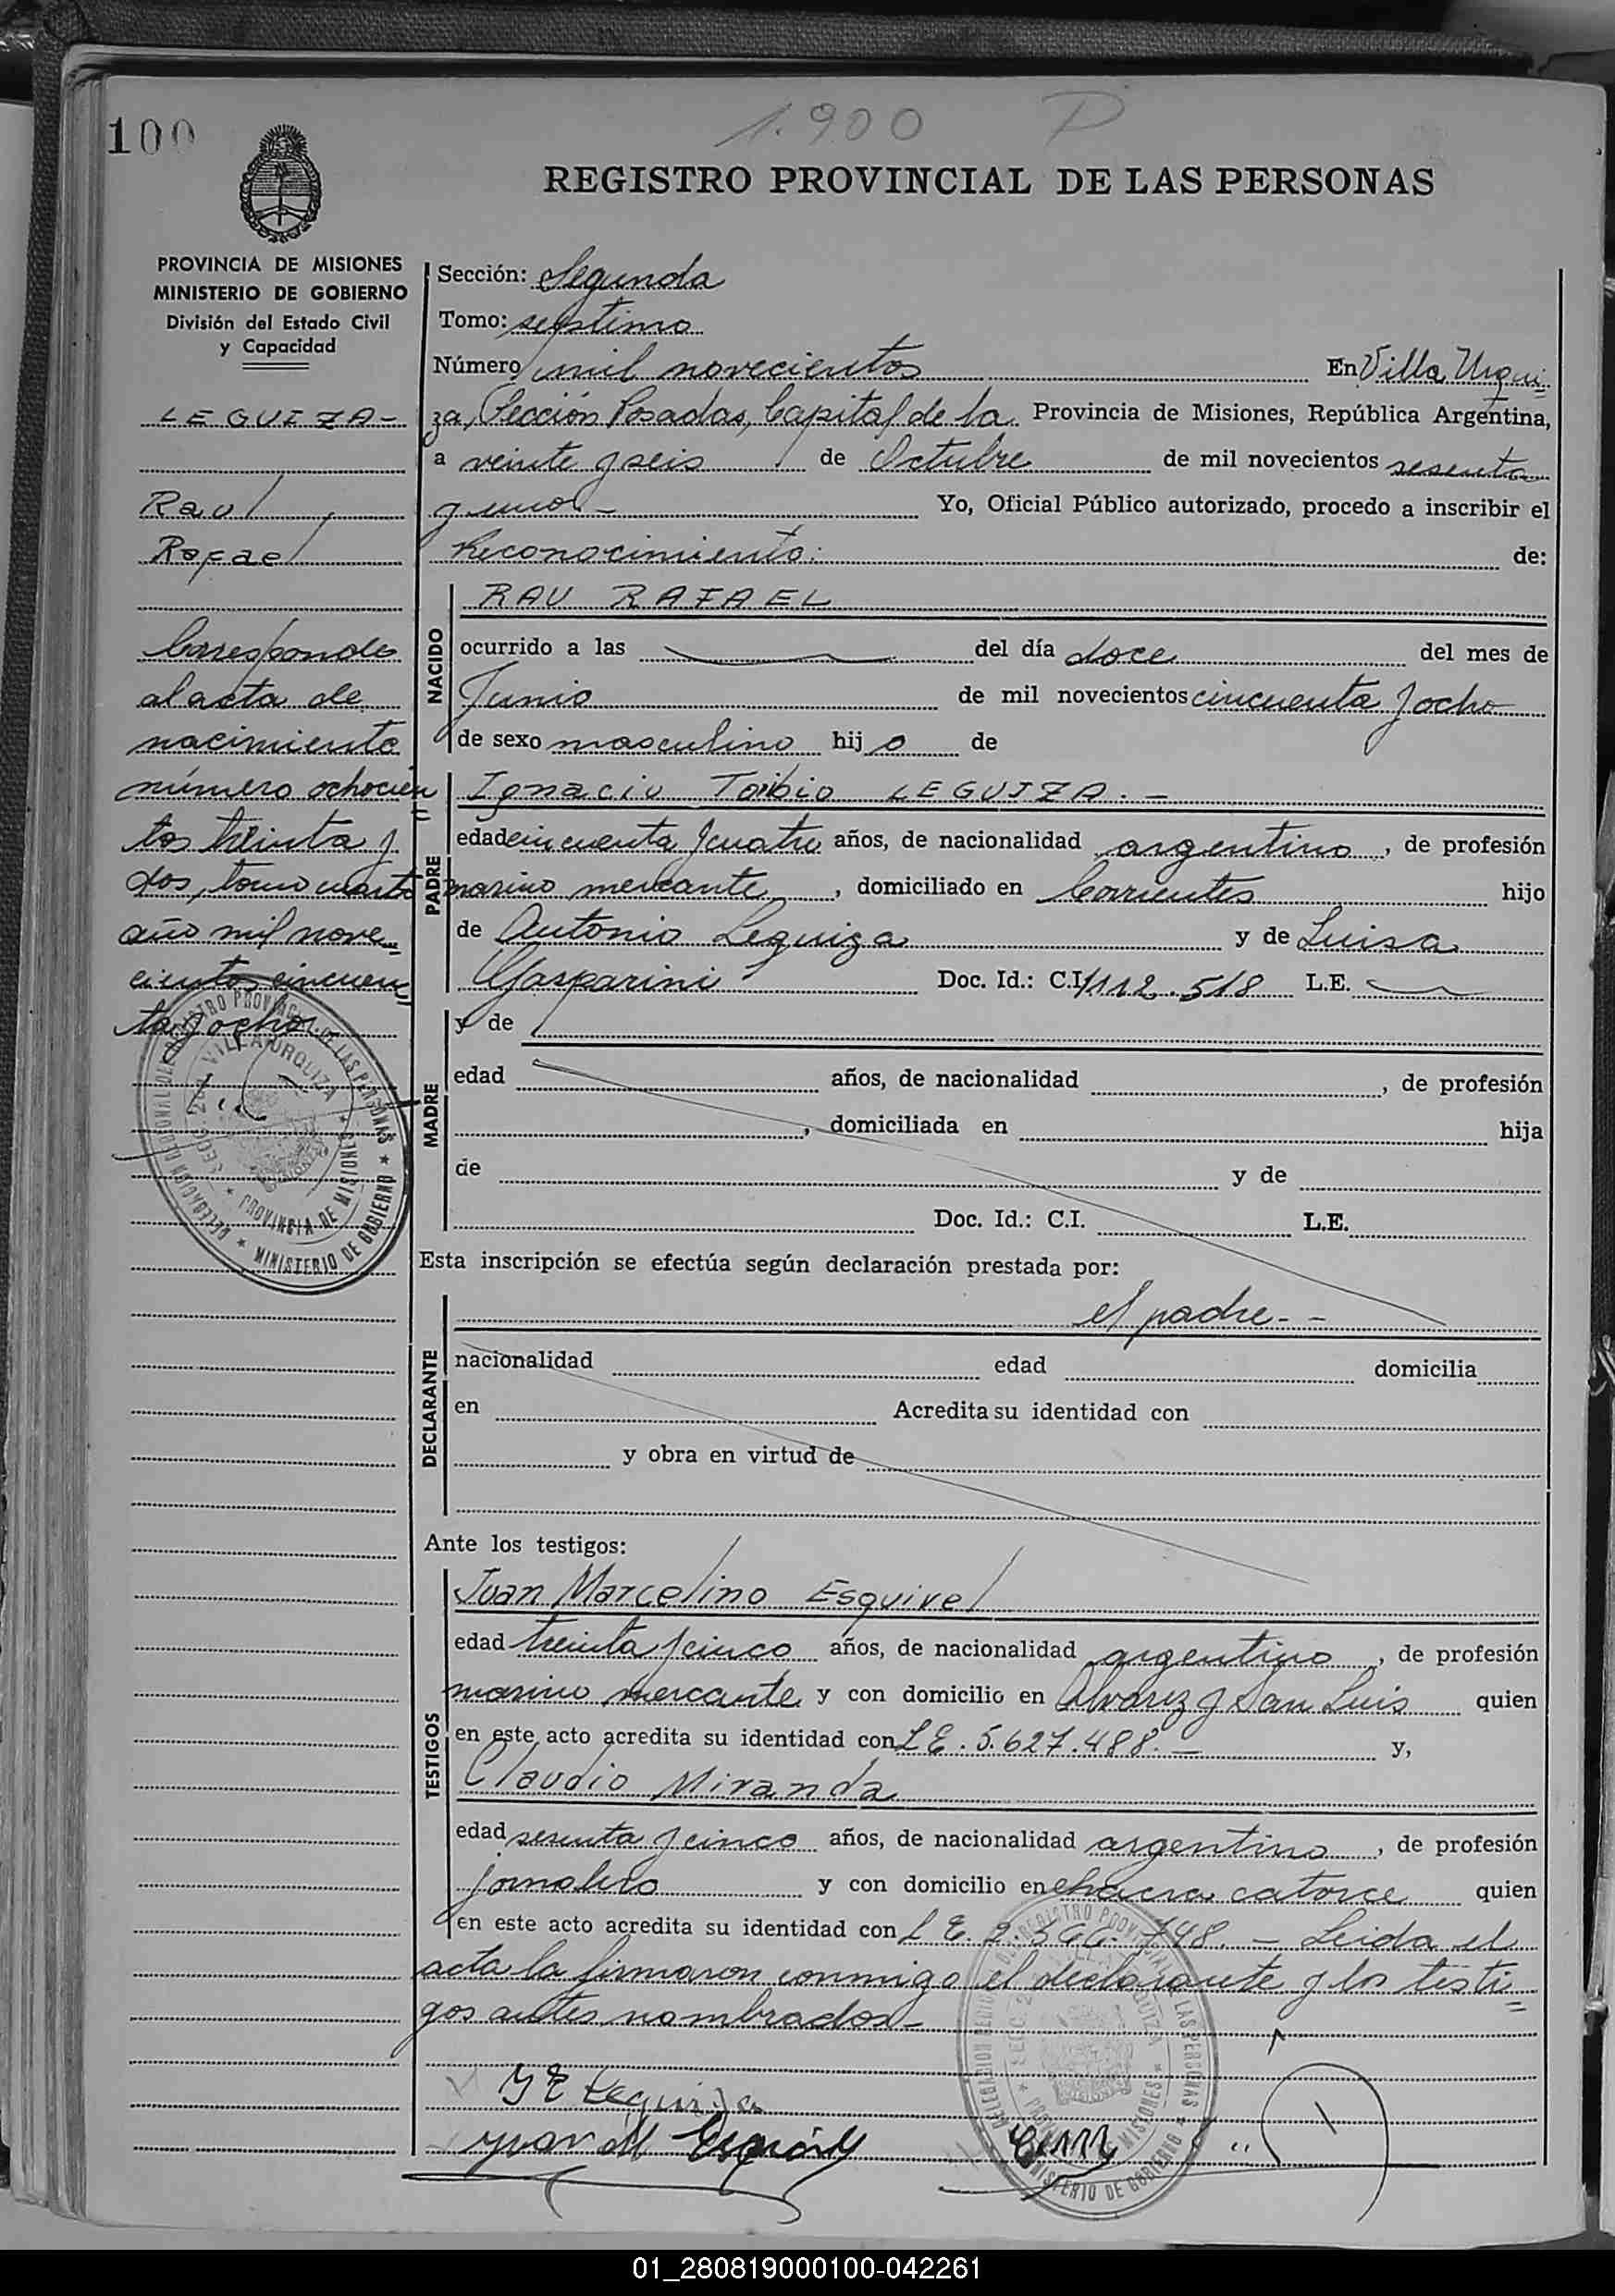 1.900 P
100
REGISTRO PROVINCIAL DE LAS PERSONAS
PROVINCIA DE MISIONES
MINISTERIO DE GOBIERNO
División del Estado Civil
y Capacidad
LEGUIZA-
Raul
Rafael
Corresponde
al acta de
nacimiento
número ochocien
tos treinta y
dos, tomo cuarto
año mil nove
cientos cincuen
ta y ocho.
Sección: Segunda
Tomo: septimo
Número mil novecientos En Villa Urqui
za, Sección Posadas, Capital de la Provincia de Misiones, República Argentina,
a veinte y seis de Octubre de mil novecientos sesenta
y uno.- Yo, Oficial Público autorizado, procedo a inscribir el
Reconocimiento: de:
NACIDO
RAU RAFAEL
ocurrido a las del día doce del mes de
Junio de mil novecientos cincuenta y ocho
de sexo masculino hijo de
PADRE
Ignacio Toribio LEGUIZA.-
edad cincuenta y cuatro años, de nacionalidad argentino, de profesión
marino mercante, domiciliado en Corrientes hijo
de Antonio Leguiza y de Luisa
Gasparini Doc. Id.: C.I. 1112.518 L.E.
MADRE
y de
edad años, de nacionalidad , de profesión
, domiciliada en hija
de y de
Doc. Id.: C.I. L.E.
Esta inscripción se efectúa según declaración prestada por:
DECLARANTE
el padre.--
nacionalidad edad domicilia
en Acredita su identidad con
y obra en virtud de
Ante los testigos:
TESTIGOS
Juan Marcelino Esquivel
edad treinta y cinco años, de nacionalidad argentino, de profesión
marino mercante y con domicilio en Alvarez y San Luis quien
en este acto acredita su identidad con L E. 5.627.488.- y,
Claudio Miranda
edad sesenta y cinco años, de nacionalidad argentino, de profesión
jornalero y con domicilio en chacra catorce quien
en este acto acredita su identidad con L E. 2.566.748.- Leida el
acta la firmaron conmigo el declarante y los testi
gos antes nombrados-
Leguiza
Juan M Esquivel
01_280819000100-042261